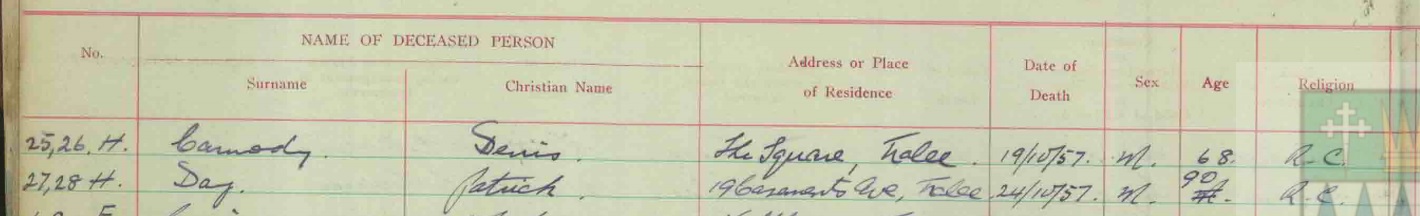 NAME OF DECEASED PERSON
No. Surname Christian Name Address or Place of Residence Date of Death Sex Age Religion
25,26. H. Carmody. Denis. The Square, Tralee. 19/10/57. M. 68. R.C.
27,28 H. Day. Patrick. 19 Casements Ave, Tralee. 24/10/57. M. 90 R.C.